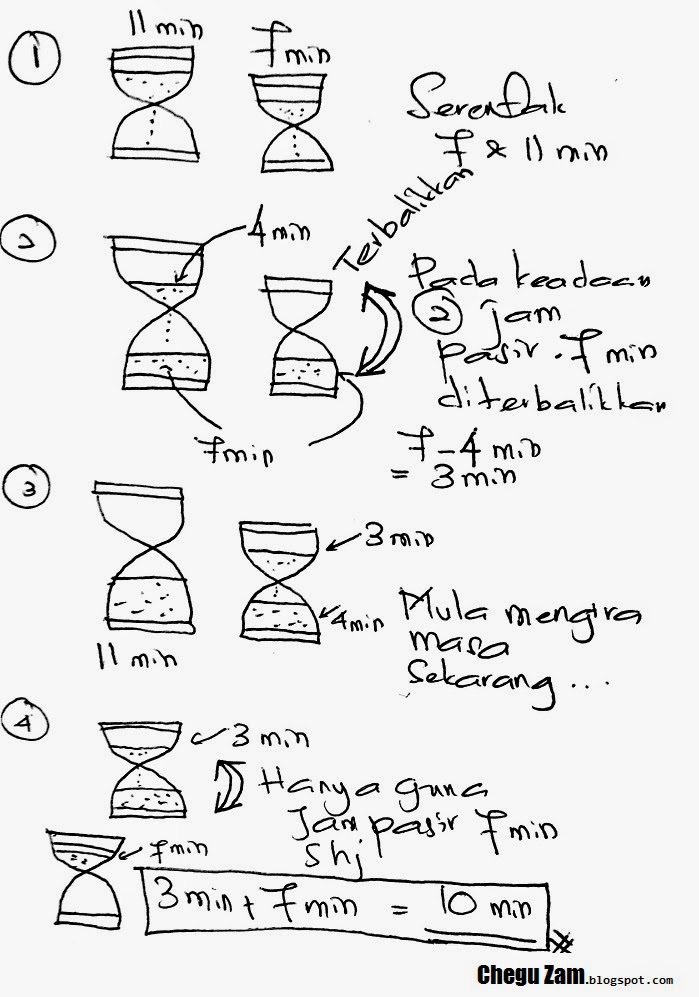 1
11 min
7 min
Serentak
7 & 11 min
2
4 min
Terbalikkan
Pada keadaan
2 jam
pasir . 7 min
diterbalikkan
7 min
7 - 4 min
= 3 min
3
3 min
4 min
11 min
Mula mengira
masa
sekarang ...
4
3 min
Hanya guna
Jam pasir 7 min
shj
7 min
3 min + 7 min = 10 min
Chegu Zam.blogspot.com